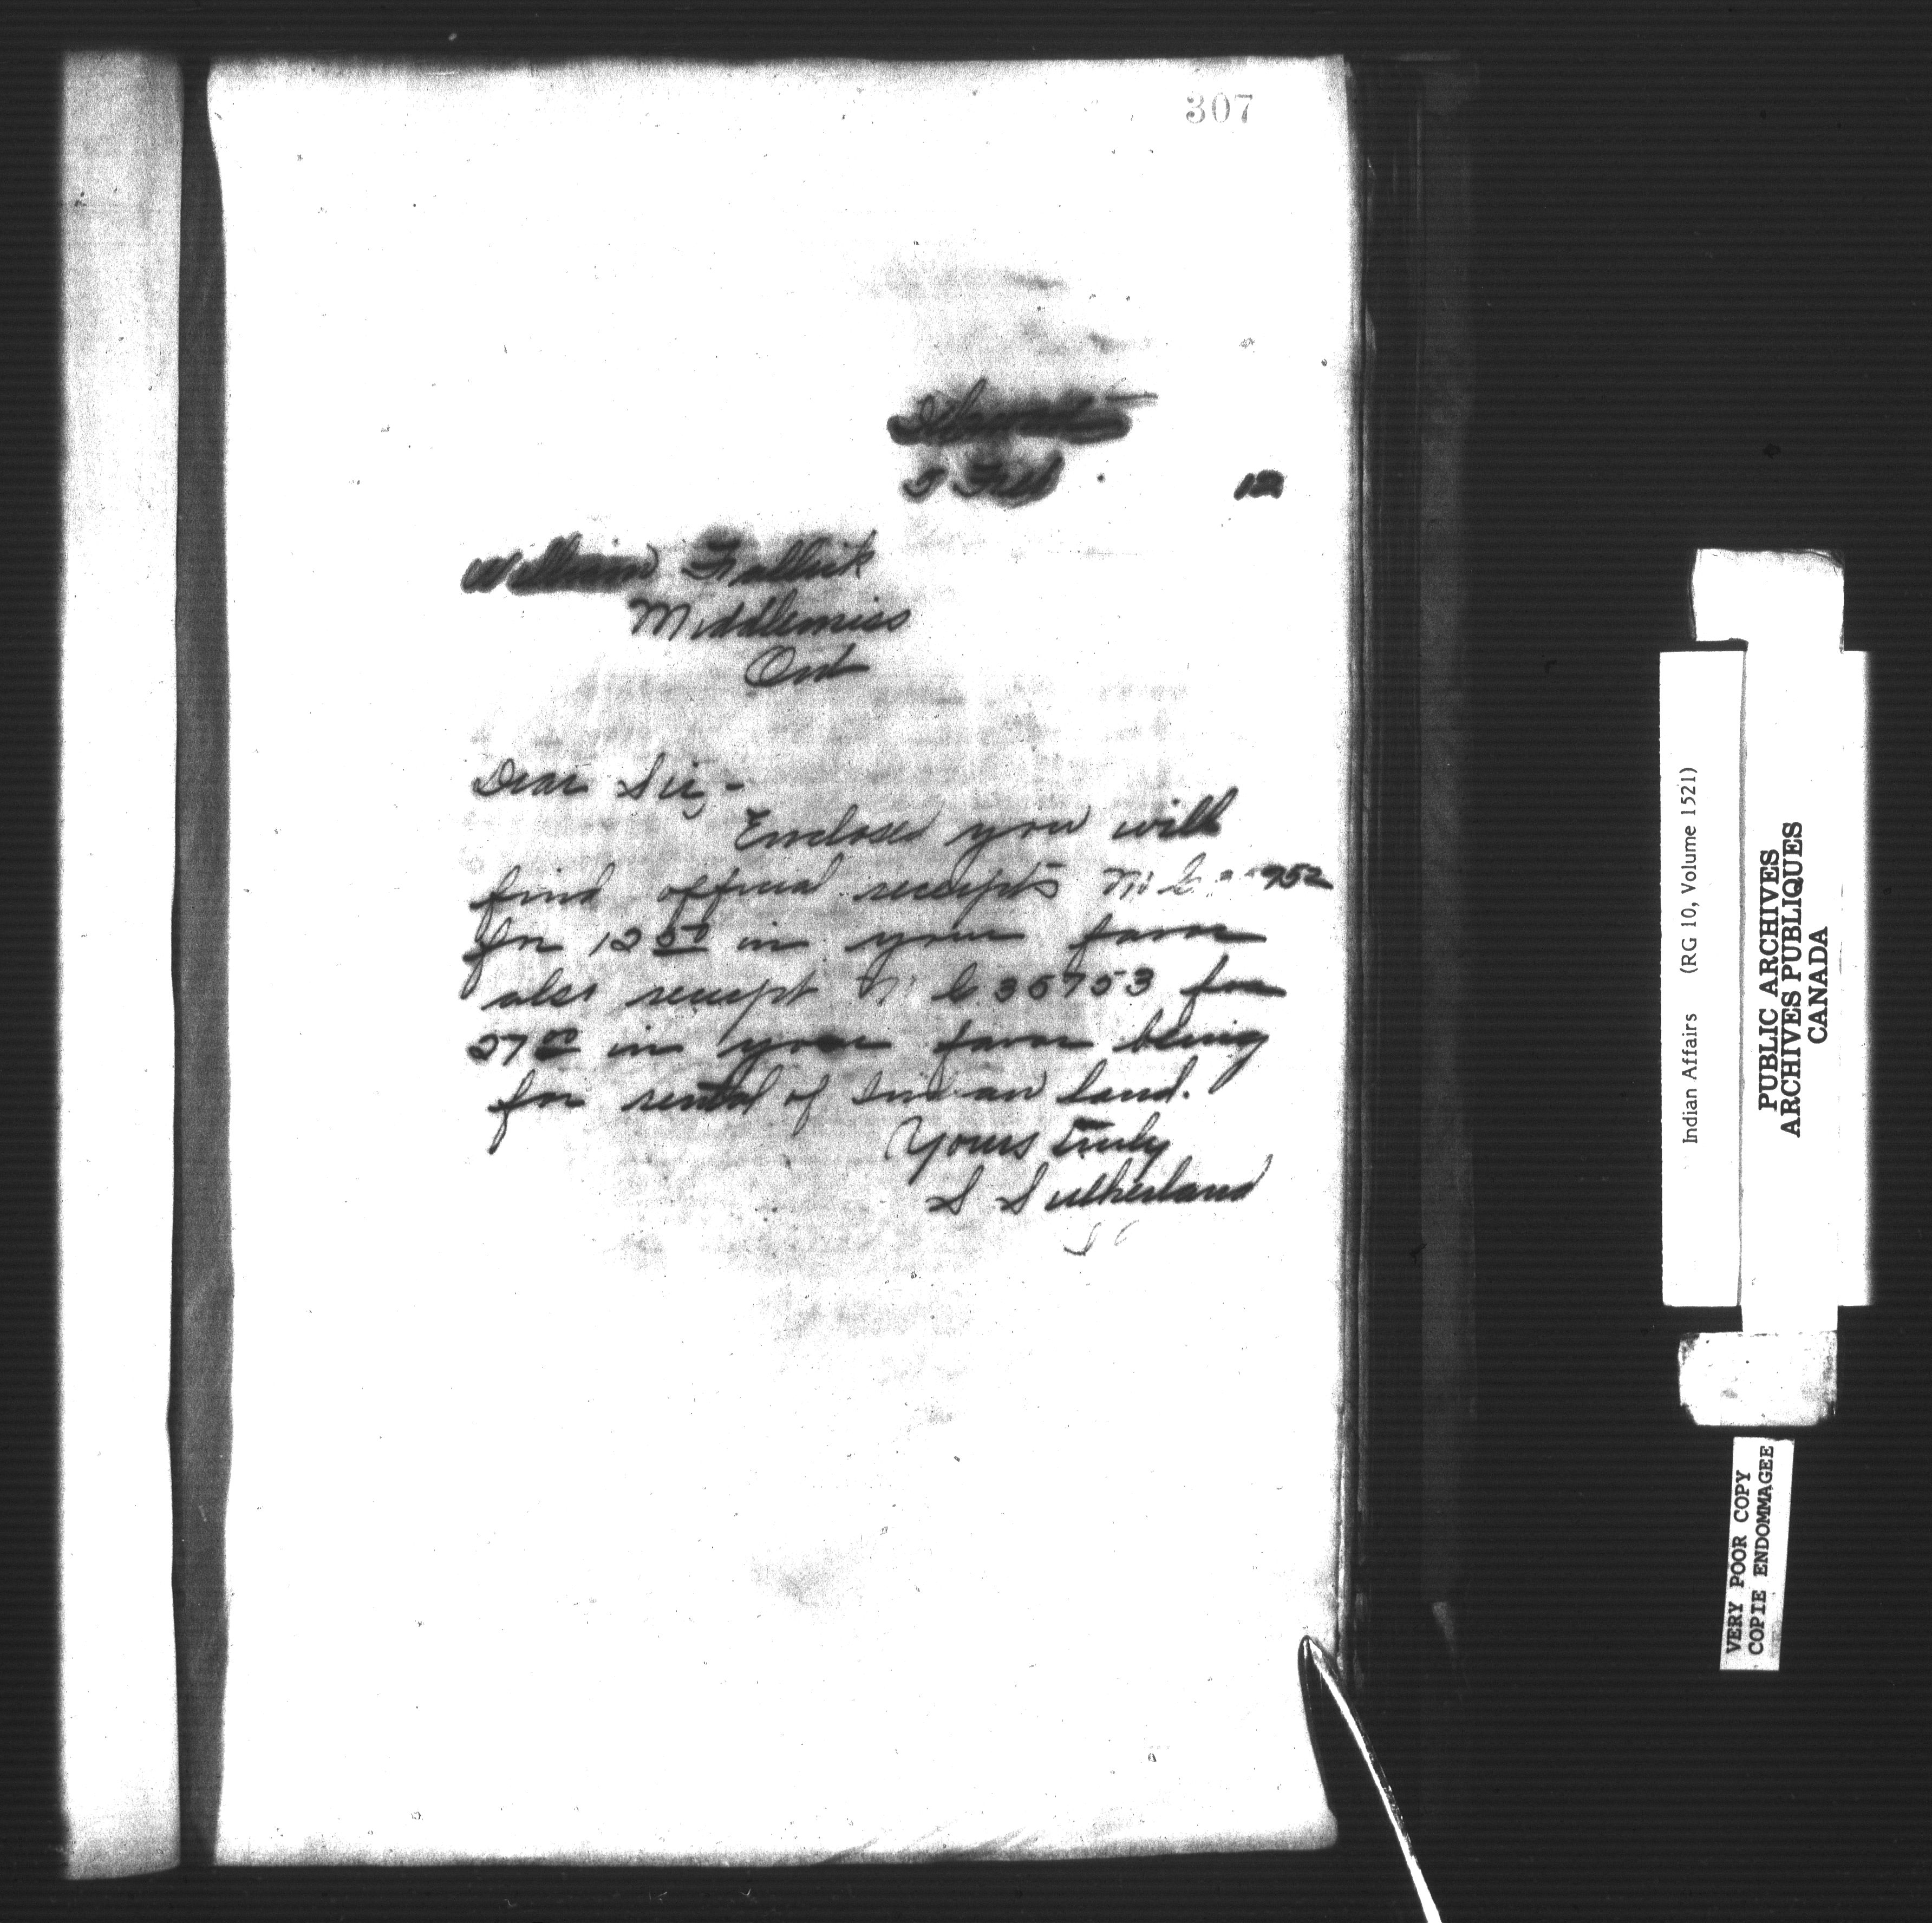 307
5 Feb 12
William Fallick
Middlemiss
Ont
Dear Sir,-
Enclosed you will
find official receipts No 952
for 12 50 in your favor
also receipt No G 35753 for
27 C in your favor being
for rental of Indian land.
Yours truly
S Sutherland
Indian Affairs (RG 10, Volume 1521)
PUBLIC ARCHIVES
ARCHIVES PUBLIQUES
CANADA
VERY POOR COPY
COPIE ENDOMMAGEE